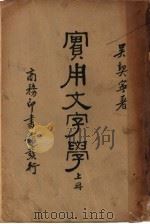 吴契宁著
實用文字學
上册
商務印書館發行